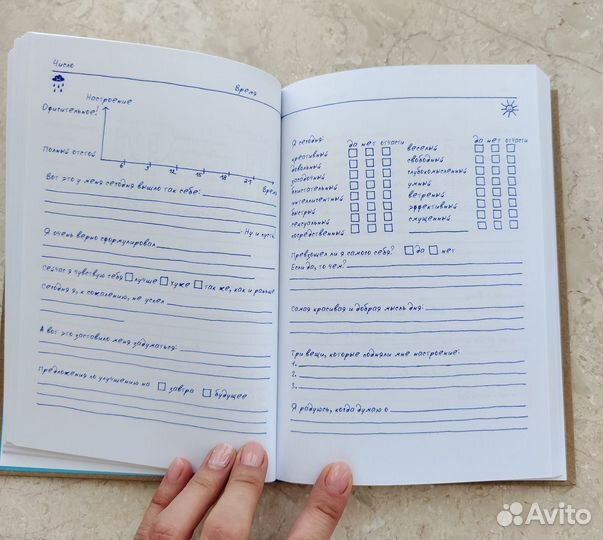 Число
Время
Настроение
Офигительное!
Полный отстой
6 9 12 15 18 21 Время
Вот это у меня сегодня вышло так себе:
. Ну и пусть.
Я очень верно сформулировал
Сейчас я чувствую себя лучше хуже так же, как и раньше
Сегодня я, к сожалению, не успел
А вот это заставило меня задуматься:
Предложения по улучшению на завтра будущее
Я сегодня: да нет отчасти
креативный
довольный
загадочный
блистательный
интеллигентный
быстрый
сексуальный
посредственный
да нет отчасти
веселый
свободный
глубокомысленный
умный
ветреный
эффективный
смущенный
Превзошел ли я самого себя? да нет
Если да, то чем?
Самая красивая и добрая мысль дня:
Три вещи, которые подняли мне настроение:
1.
2.
3.
Я радуюсь, когда думаю о
Avito